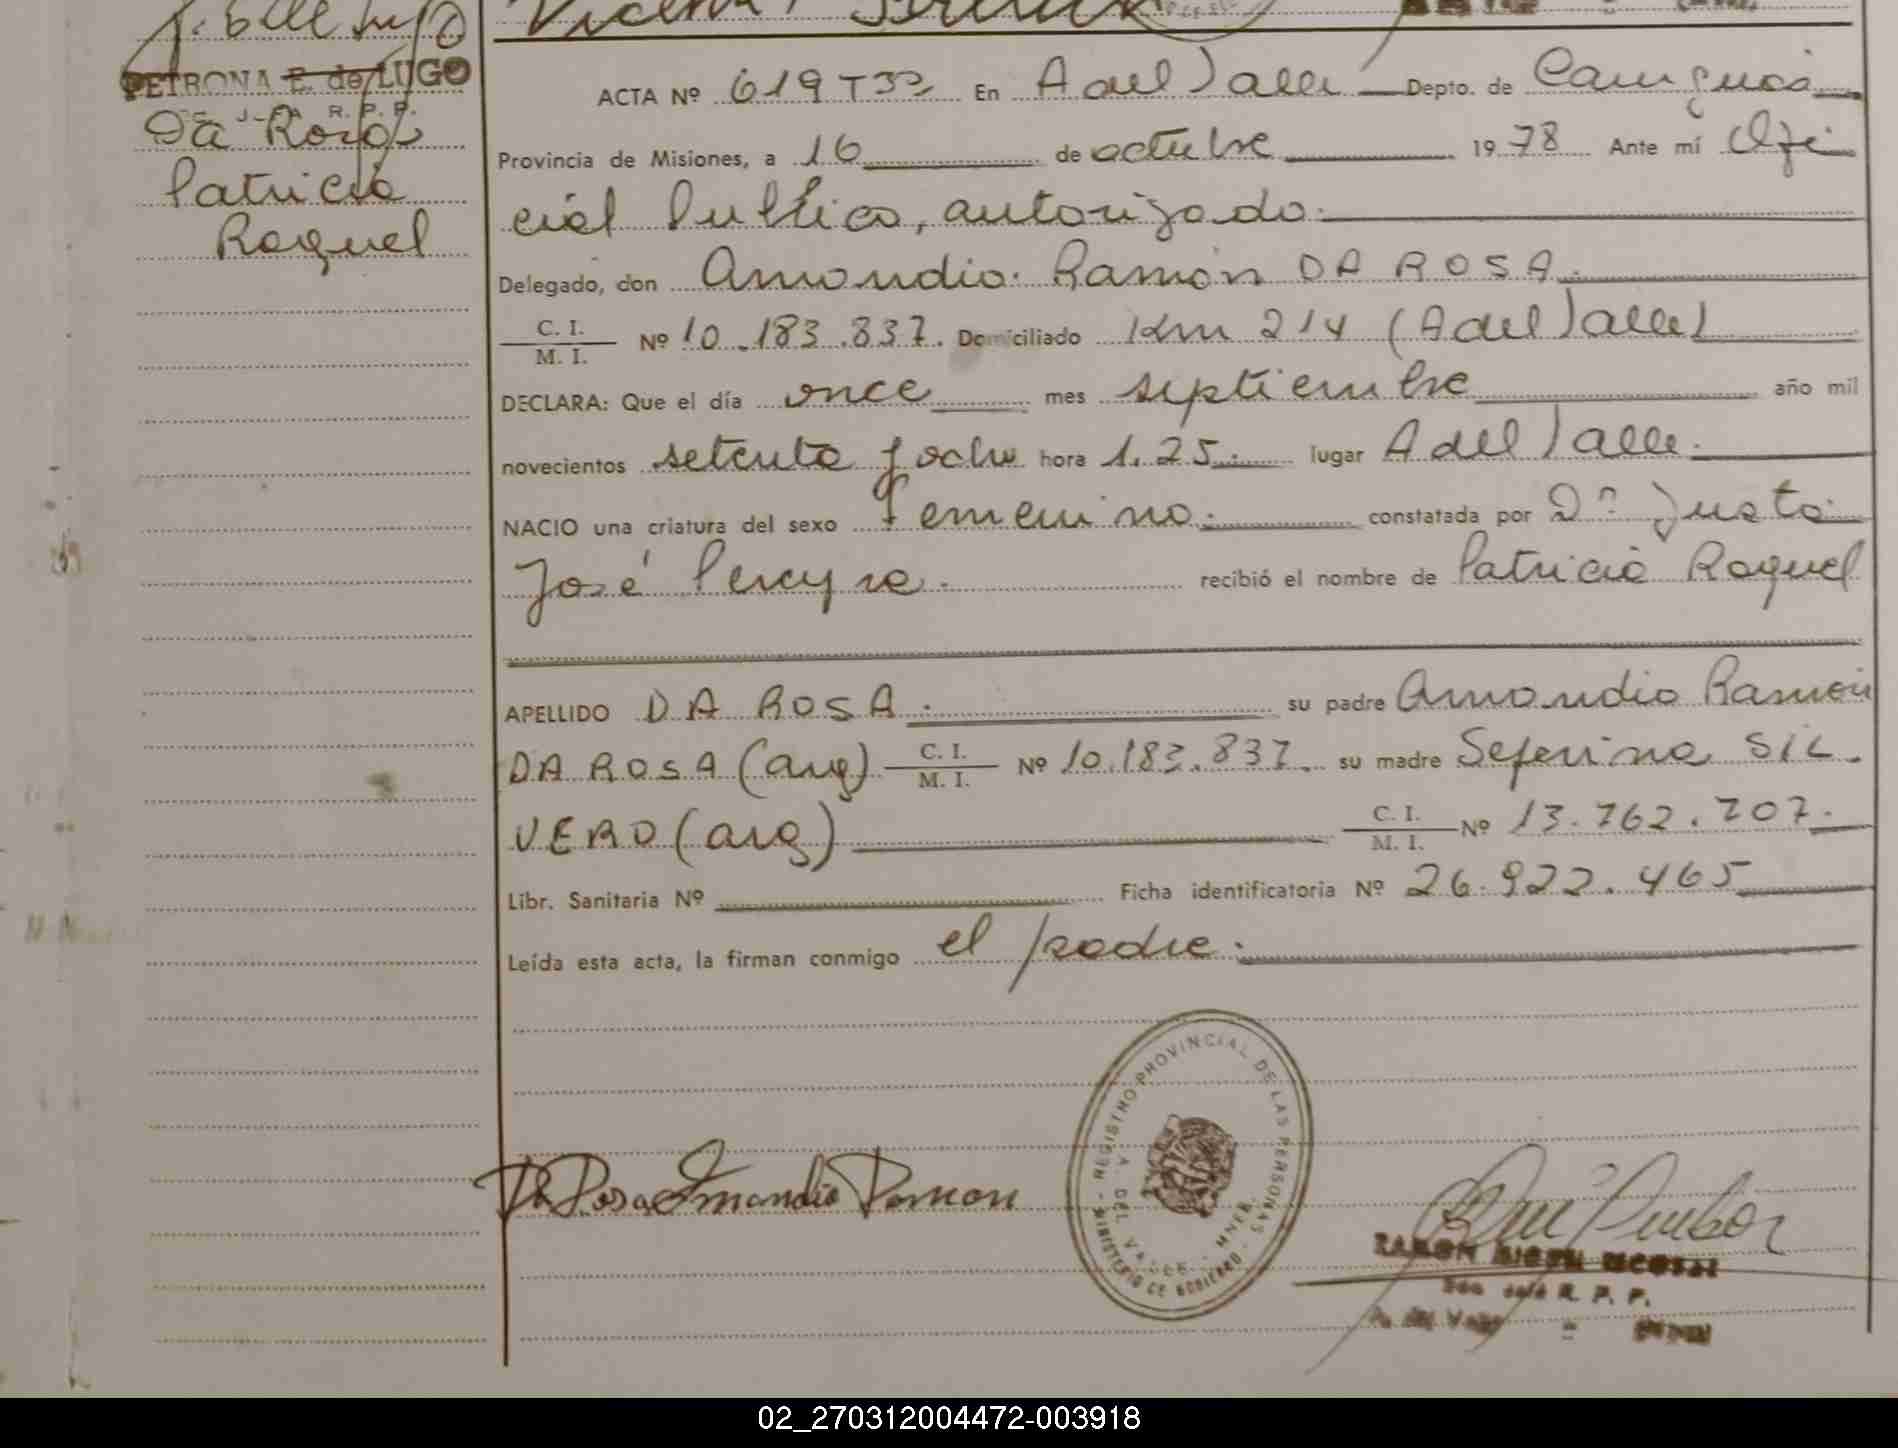 PETRONA E. de LUGO
J. R. P. P.
Da Rosa
Patricia
Raquel
ACTA Nº 619 T3º En A del Valle Depto. de Cainguás
Provincia de Misiones, a 16 de octubre 1978 Ante mí Ofi
cial Publico, autorizado.
Delegado, don Amandio Ramón DA ROSA.
C. I.
M. I. Nº 10.183.837. Domiciliado Km 214 (A del Valle)
DECLARA: Que el día once mes septiembre año mil
novecientos setenta y ocho hora 1.25. lugar A del Valle.
NACIO una criatura del sexo femenino. constatada por Dn. Justo
José Pereyra. recibió el nombre de Patricia Raquel
APELLIDO DA ROSA. su padre Amandio Ramón
DA ROSA (arg) C. I.
M. I. Nº 10.183.837. su madre Seferina SIL
VERO (arg) C. I.
M. I. Nº 13.762.707.
Libr. Sanitaria Nº Ficha identificatoria Nº 26.922.465
Leída esta acta, la firman conmigo el padre.
REGISTRO PROVINCIAL DE LAS PERSONAS
MINISTERIO DE GOBIERNO
A DEL VALLE - MNES.
Da Rosa Amandio Ramon
RAMON
R. P. P.
02_270312004472-003918